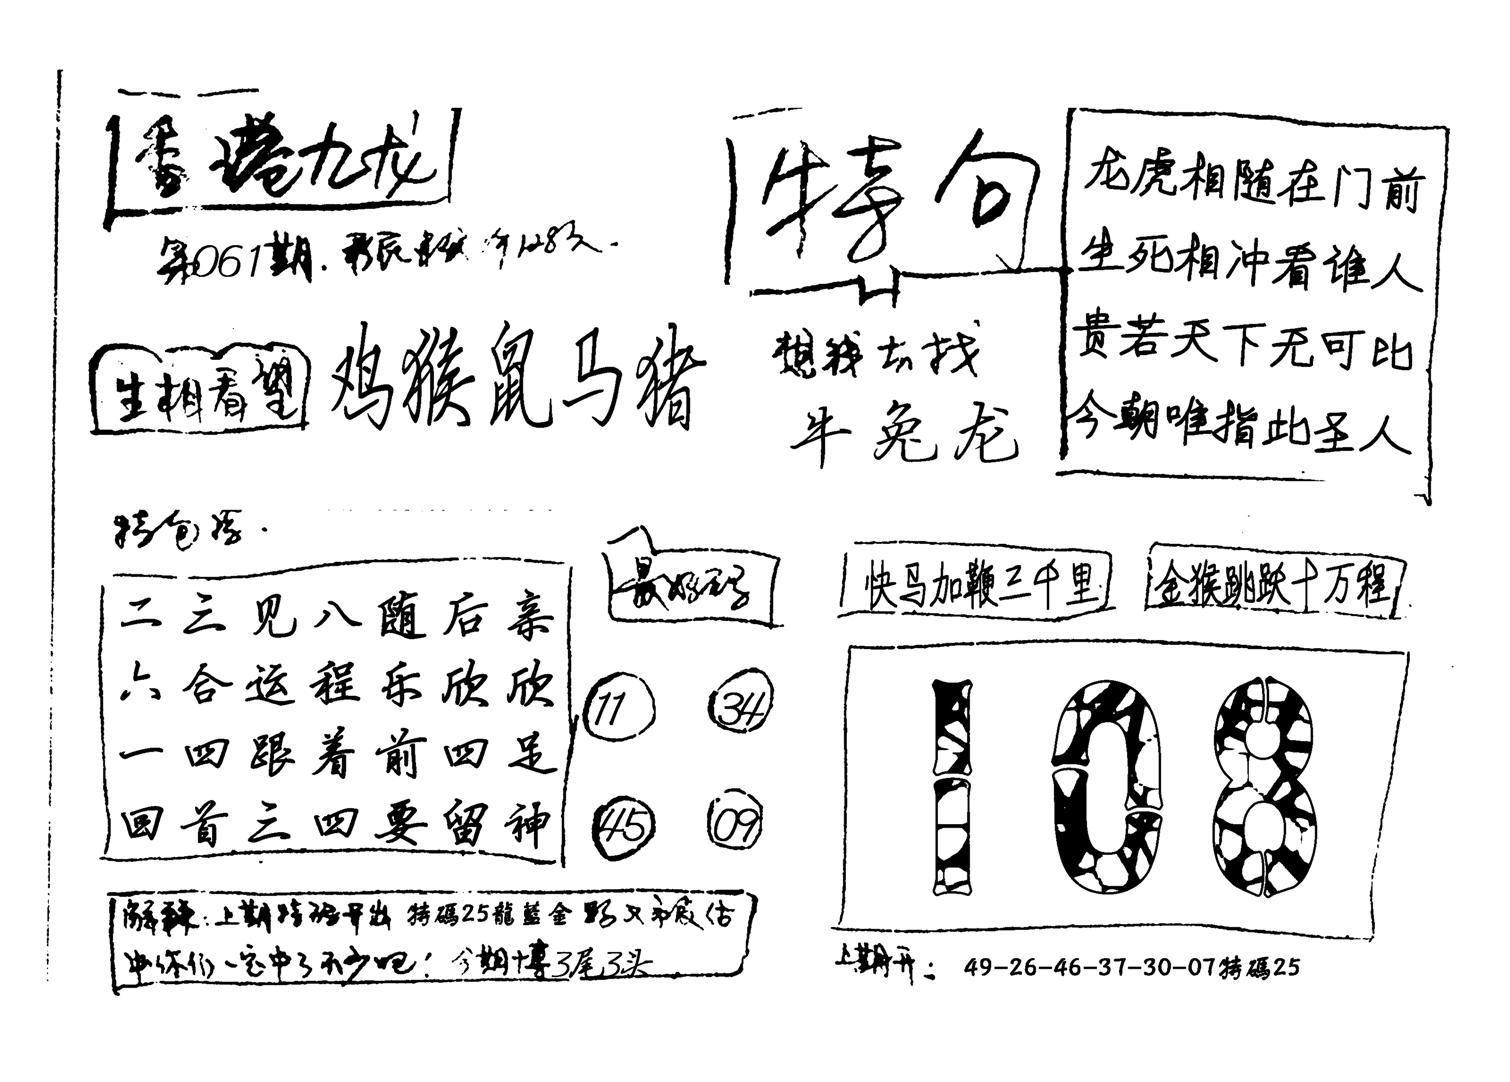 香港九龙
第061期.
生相看望
鸡猴鼠马猪
特句
龙虎相随在门前
生死相冲看谁人
贵若天下无可比
今朝唯指此圣人
想钱去找
牛兔龙
二三见八随后亲
六合运程乐欣欣
一四跟着前四足
回首三四要留神
最好码
11 34
45 09
快马加鞭三千里
金猴跳跃十万程
108
上期特码开出 特碼25龍藍金
你们一定中了不少吧！今期十博3尾3头
上期开： 49-26-46-37-30-07特碼25